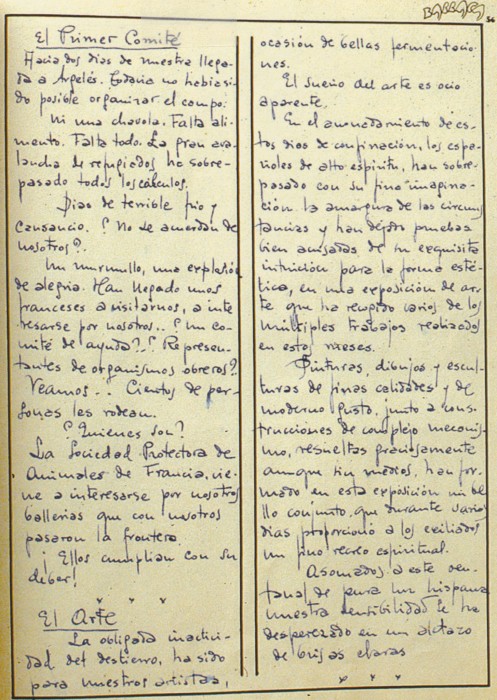 BARRACA
56
El Primer Comité
Hacía dos dias de nuestra llega-
da a Argelés. Todavia no habia si-
do posible organizar el campo.
Ni una chavola. Falta ali-
mento. Falta todo. La gran ava-
lancha de refugiados ha sobre-
pasado todos los cálculos.
Dias de terrible frio y
cansancio. ¿No se acuerdan de
nosotros?.
Un murmullo, una explosión
de alegria. Han llegado unos
franceses a visitarnos, a inte
resarse por nosotros.. ¿Un co-
mité de ayuda?.¿Represen-
tantes de organismos obreros?.
Veamos.. Cientos de per-
sonas les rodean.
¿Quienes son?
La Sociedad Protectora de
Animales de Francia, vie-
ne a interesarse por nosotros
ballerias que con nosotros
pasaron la frontera.
¡Ellos cumplian con su
deber!
x x x
El Arte
La obligada inactivi-
dad del destierro, ha sido
para nuestros artistas,
ocasión de bellas fermentacio-
nes.
El sueño del arte es ocio
aparente.
En el anonadamiento de es-
tos dias de confinación, los espa-
ñoles de alto espiritu, han sobre
pasado con su fina imagina-
ción la amargura de las circuns
tancias y han dejado pruebas
bien avisadas de su exquisita
intuición para la forma esté-
tica, en una exposición de ar-
te que ha reunido varios de los
multiples trabajos realizados
en estos meses.
Pinturas, dibujos y escul-
turas de finas calidades y de
moderno gusto, junto a cons-
trucciones de complejo mecanis-
mo, resueltas graciosamente
aunque sin medios, han for-
mado en esta exposición un be
llo conjunto, que durante varios
dias proporcionó a los exiliados
un fino recreo espiritual.
Asomados a este ven-
tanal de pura luz hispana
nuestra sensibilidad se ha
desperezado en un aletazo
de brisas claras
x x x